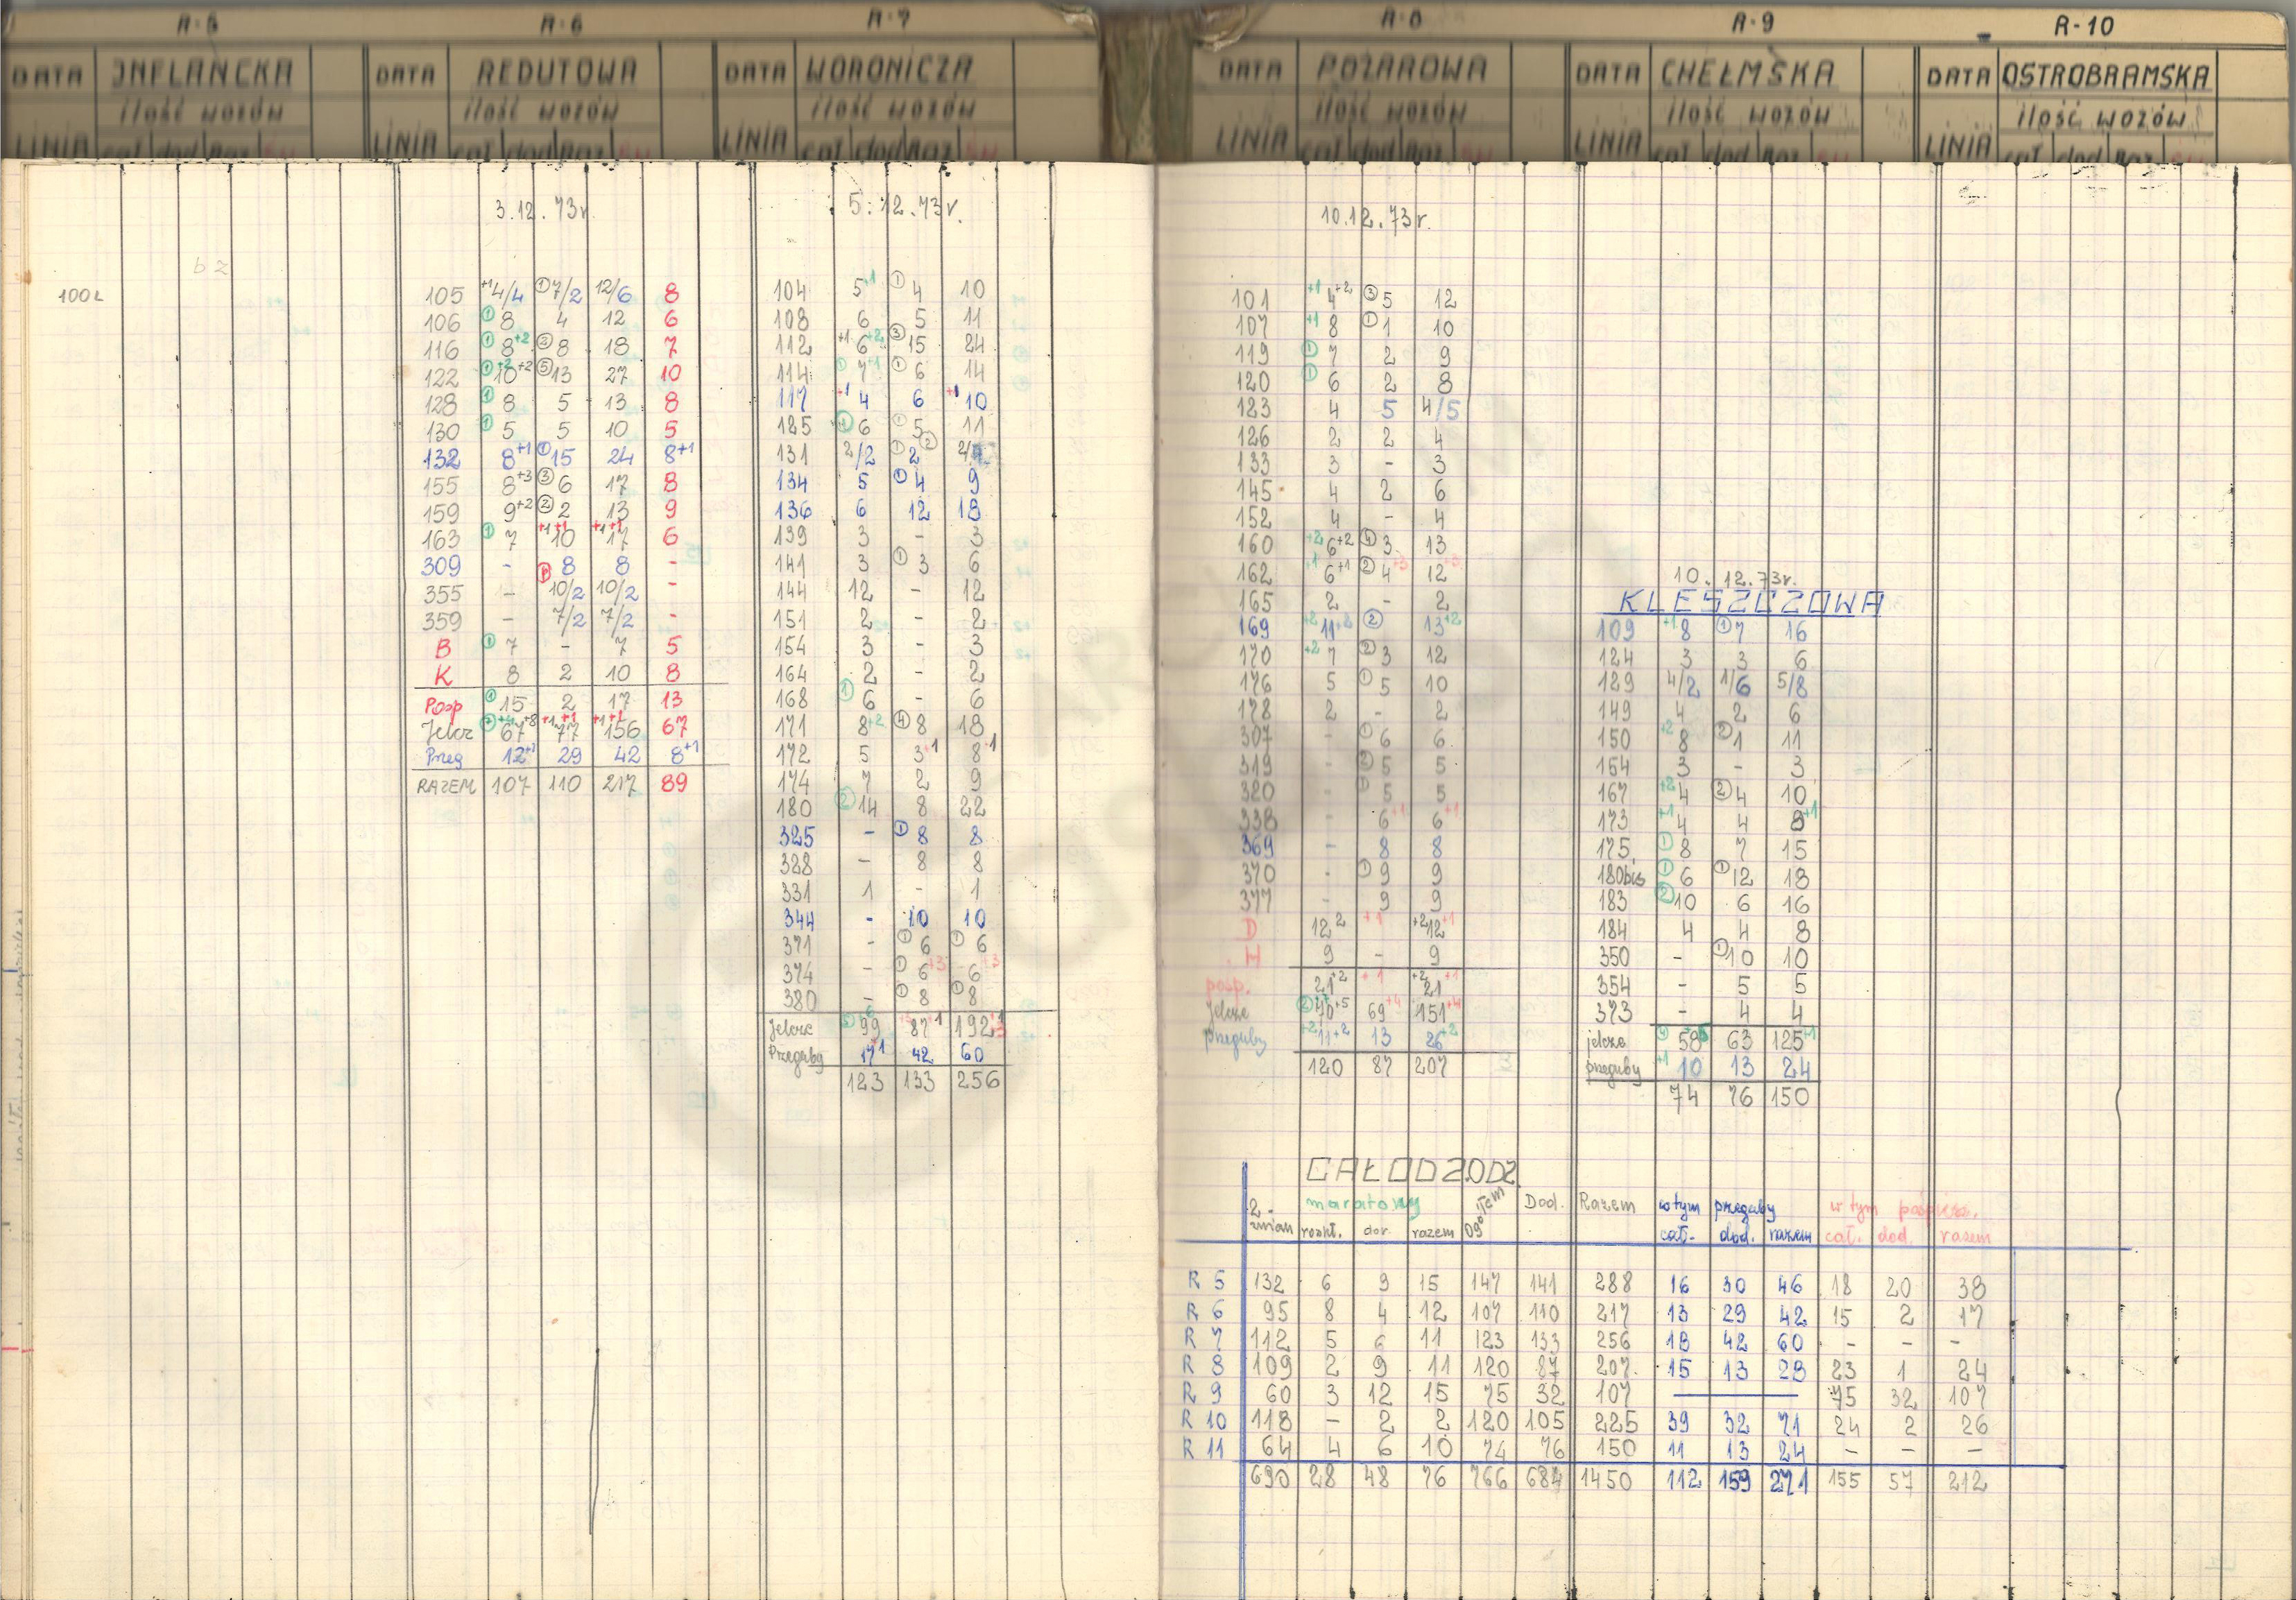 R-5 R-6 R-7 R-8 R-9 R-10
DATA INFLANCKA DATA REDUTOWA DATA WORONICZA DATA POŻAROWA DATA CHEŁMSKA DATA OSTROBRAMSKA
ilość wozów ilość wozów ilość wozów ilość wozów ilość wozów ilość wozów
LINIA cał dod Raz LINIA cał dod Raz LINIA cał dod Raz LINIA cał dod Raz LINIA cał dod Raz LINIA cał dod Raz
b z
100L
3.12.73r.
105 +1 4/4 ① 7/2 12/6 8
106 ① 8 4 12 6
116 ① 8+2 ② 8 18 7
122 ① +2 10+2 ⑤ 13 27 10
128 ① 8 5 13 8
130 ① 5 5 10 5
132 8+1 ① 15 24 8+1
155 8+3 ③ 6 17 8
159 9+2 ② 2 13 9
163 ① 7 +1+1 10 +1+1 17 6
309 - 8 8 -
355 - 10/2 10/2 -
359 - 7/2 7/2 -
B ① 7 - 7 5
K 8 2 10 8
Posp ① 15 2 17 13
Jelcz 67+8 +1+1 77 +1+1 156 67
Przeg 12+1 29 42 8+1
RAZEM 107 110 217 89
5.12.73r.
104 5+1 ① 4 10
108 6 5 11
112 +1 6+2 ③ 15 24
114 ① 7+1 ① 6 14
117 +1 4 6 +1 10
125 6 ① 5 11
131 2/2 ① 2 ②
134 5 ① 4 9
136 6 12 18
139 3 - 3
141 3 ① 3 6
144 12 - 12
151 2 - 2
154 3 - 3
164 2 - 2
168 ① 6 - 6
171 8+2 ④ 8 18
172 5 3+1 8+1
174 7 2 9
180 ② 14 8 22
325 - ① 8 8
328 - 8 8
331 1 - 1
344 - 10 10
371 - ① 6 ① 6
374 - ① 6+3 6+3
380 - ① 8 ① 8
Jelcze 99 87+1 192+1
Przeguby 17+1 42 60
123 133 256
10.12.73r.
101 +1 4+2 ③ 5 12
107 +1 8 ① 1 10
119 ① 7 2 9
120 ① 6 2 8
123 4 5 4/5
126 2 2 4
133 3 - 3
145 4 2 6
152 4 - 4
160 +2 6+2 ④ 3 13
162 +1 6+1 ② 4+3 12+3
165 2 - 2
169 +2 11+2 ② 13+2
170 +2 7 ② 3 12
176 5 ① 5 10
178 2 - 2
307 - ① 6 6
319 - ② 5 5
320 - ① 5 5
338 - 6+1 6+1
369 - 8 8
370 - ① 9 9
377 - 9 9
D 12 2 +1 +2 12+1
H 9 - 9
posp. 21+2 +1 +2 21+1
Jelcze ② 70+5 69+4 151+4
przeguby +2 11+2 13 26+2
120 87 207
10.12.73r.
KLESZCZOWA
109 +1 8 ① 7 16
124 3 3 6
129 4/2 1/6 5/8
149 4 2 6
150 +2 8 ② 1 11
154 3 - 3
167 +2 4 ② 4 10
173 +1 4 4 8+1
175 ① 8 7 15
180bis ① 6 ① 12 18
183 ② 10 6 16
184 4 4 8
350 - ① 10 10
354 - 5 5
373 - 4 4
jelcze ④ 58+5 63 125+1
przeguby +1 10 13 24
74 76 150
CAŁODZODZ.
2-zmian maratony Ogółem Dod. Razem w tym przeguby w tym pośpiesz.
rozkł. dor. razem cał. dod. razem cał. dod. razem
R 5 132 6 9 15 147 141 288 16 30 46 18 20 38
R 6 95 8 4 12 107 110 217 13 29 42 15 2 17
R 7 112 5 6 11 123 133 256 18 42 60 - - -
R 8 109 2 9 11 120 87 207 15 13 28 23 1 24
R 9 60 3 12 15 75 32 107 — 75 32 107
R 10 118 - 2 2 120 105 225 39 32 71 24 2 26
R 11 64 4 6 10 74 76 150 11 13 24 - - -
690 28 48 76 766 684 1450 112 159 271 155 57 212